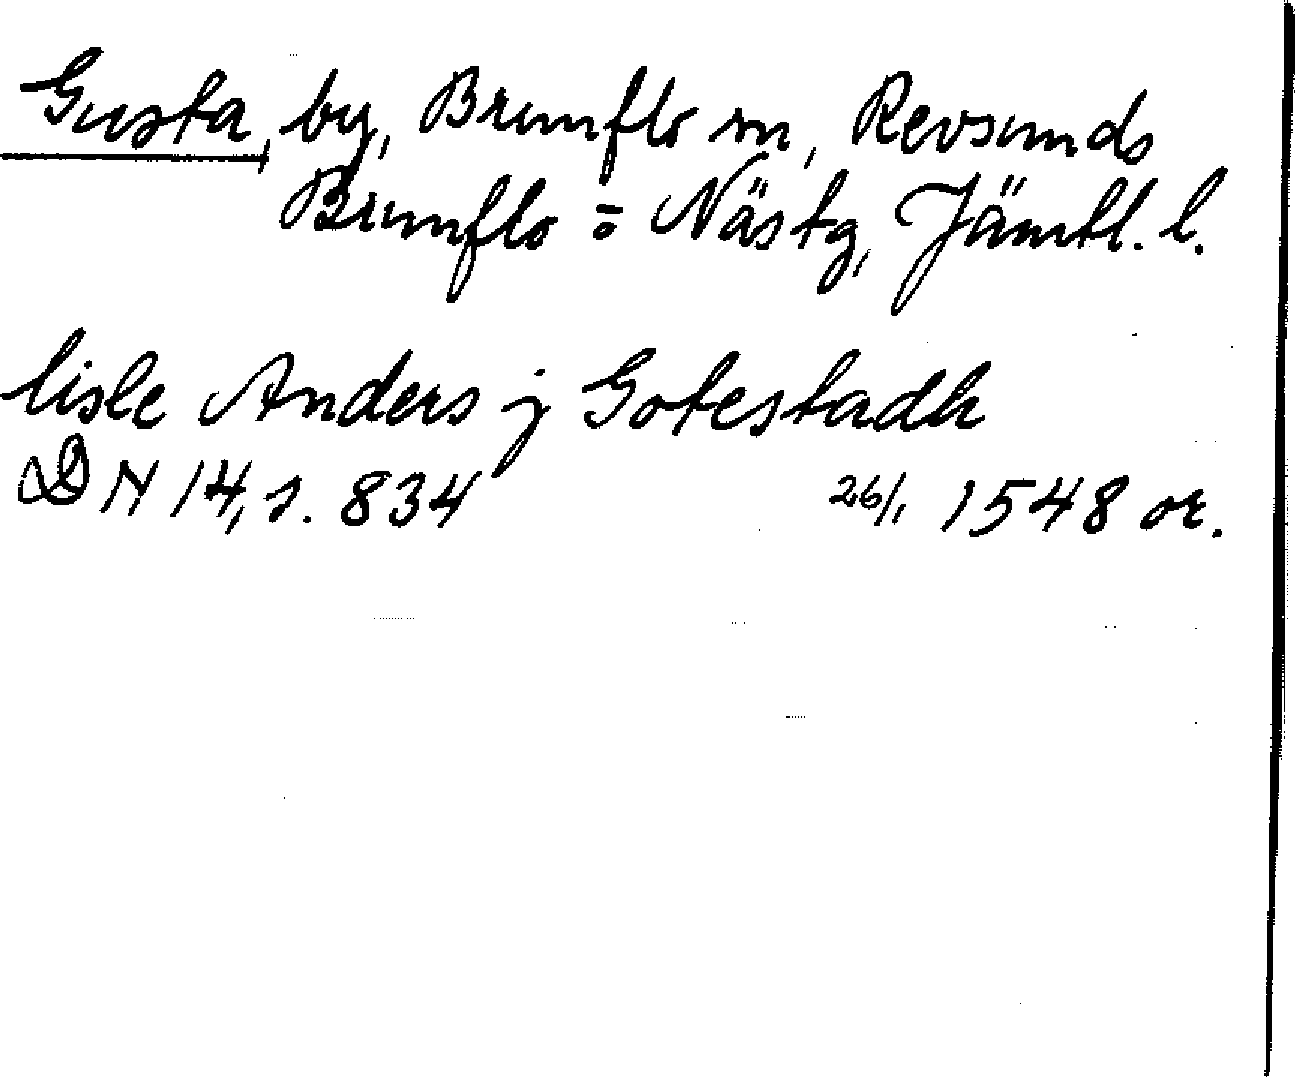 Gusta, by, Brunflo sn, Revsunds
Brunflo o Näs tg, Jämtl. l.
lisle Anders j Gotestadh
DN 14, s. 834 26/1 1548 or.